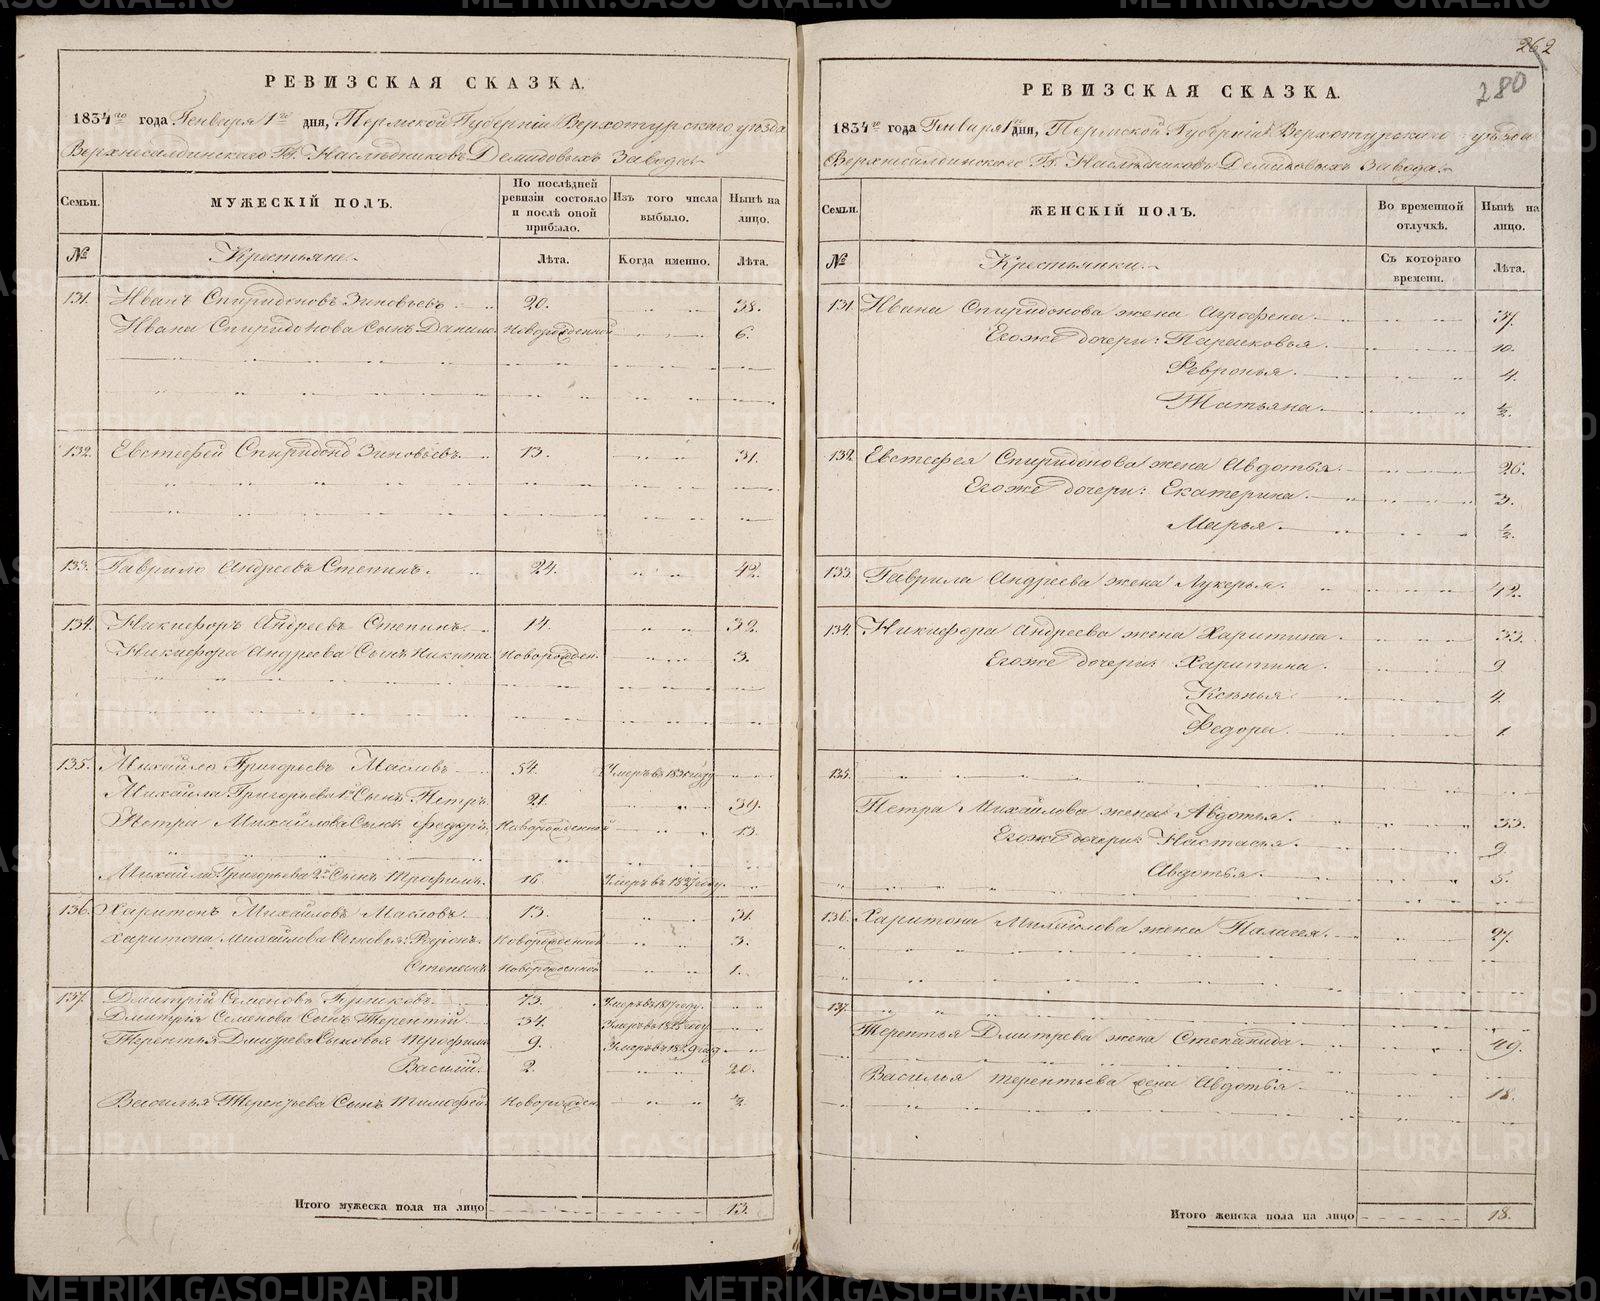 РЕВИЗСКАЯ СКАЗКА.
1834го года Генваря 1го дня, Пермской Губерніи Верхотурскаго уѣзда
Верхнесалдинскаго Гг. Наслѣдниковъ Демидовыхъ Завода
Семьи.
МУЖЕСКІЙ ПОЛЪ.
По послѣдней ревизіи состояло и послѣ оной прибыло.
Изъ того числа выбыло.
Нынѣ на лицо.
№
Крестьяне
Лѣта.
Когда именно.
Лѣта.
131. Иванъ Спиридоновъ Зиновьевъ 20. 38.
Ивана Спиридонова Сынъ Данило Новорожденной 6.
132. Евстефей Спиридоновъ Зиновьевъ 13. 31.
133. Гаврило Андреевъ Степинъ. 24. 42.
134. Никифоръ Андреевъ Степинъ 14. 32.
Никифора Андреева Сынъ Никита Новорожден. 3.
135. Михайло Григорьевъ Масловъ 54. Умеръ въ 1831 году
Михайла Григорьева 1й Сынъ Петръ. 21. 39.
Петра Михайлова Сынъ Федоръ. Новорожденной 13.
Михайла Григорьева 2й Сынъ Трофимъ. 16. Умеръ въ 1827 году.
136. Харитонъ Михайловъ Масловъ 13. 31.
Харитона Михайлова Сыновья: Родіонъ. Новорожденной 3.
Степанъ Новорожденной 1.
137. Дмитрій Семеновъ 73. Умеръ въ 1817 году.
Дмитрія Семенова Сынъ Терентій. 34. Умеръ въ 1825 году
Терентья Дмитрева Сыновья Трофимъ 9. Умеръ въ 1829 году
Василій. 2. 20.
Василья Терентьева Сынъ Тимофей Новорожден. ½.
Итого мужеска пола на лицо 13.
262
280
РЕВИЗСКАЯ СКАЗКА.
1834го года Генваря 1го дня, Пермской Губерніи Верхотурскаго уѣзда
Верхнесалдинскаго Гг. Наслѣдниковъ Демидовыхъ Завода.
Семьи.
ЖЕНСКІЙ ПОЛЪ.
Во временной отлучкѣ.
Нынѣ на лицо.
№
Крестьянки.
Съ котораго времени.
Лѣта.
131. Ивана Спиридонова жена Аграфена 37.
Егоже дочери: Парасковья 10.
Февронья. 4.
Татьяна. ½.
132. Евстефея Спиридонова жена Авдотья 26.
Егоже дочери: Екатерина. 3.
Марья. ½.
133. Гаврила Андреева жена Лукерья. 42.
134. Никифора Андреева жена Харитина 33.
Егоже дочери: Харитина. 9.
Ксенья 4.
Федора. 1.
135.
Петра Михайлова жена Авдотья. 33.
Егоже дочери: Настасья. 9.
Авдотья. 5.
136. Харитона Михайлова жена Палагея. 27.
137.
Терентья Дмитрева жена Степанида 49.
Василья Терентьева жена Авдотья 18.
Итого женска пола на лицо 18.
METRIKI.GASO-URAL.RU